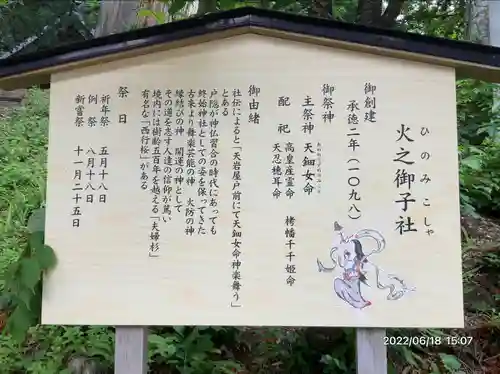 火之御子社
ひのみこしゃ
御創建
承徳二年(一〇九八)
御祭神
主祭神 天鈿女命
配祀 高皇産霊命 栲幡千千姫命
天忍穂耳命
御由緒
社伝によると「天岩屋戸前にて天鈿女命神楽舞う」
とある
戸隠が神仏習合の時代にあっても
終始神社としての姿を保ってきた
古来より舞楽芸能の神 火防の神
縁結びの神 開運の神として
その道を志す人達の信仰が篤い
境内には樹齢五百年を越える「夫婦杉」
有名な「西行桜」がある
祭日
祈年祭 五月十八日
例祭 八月十八日
新嘗祭 十一月二十五日
2022/06/18 15:07